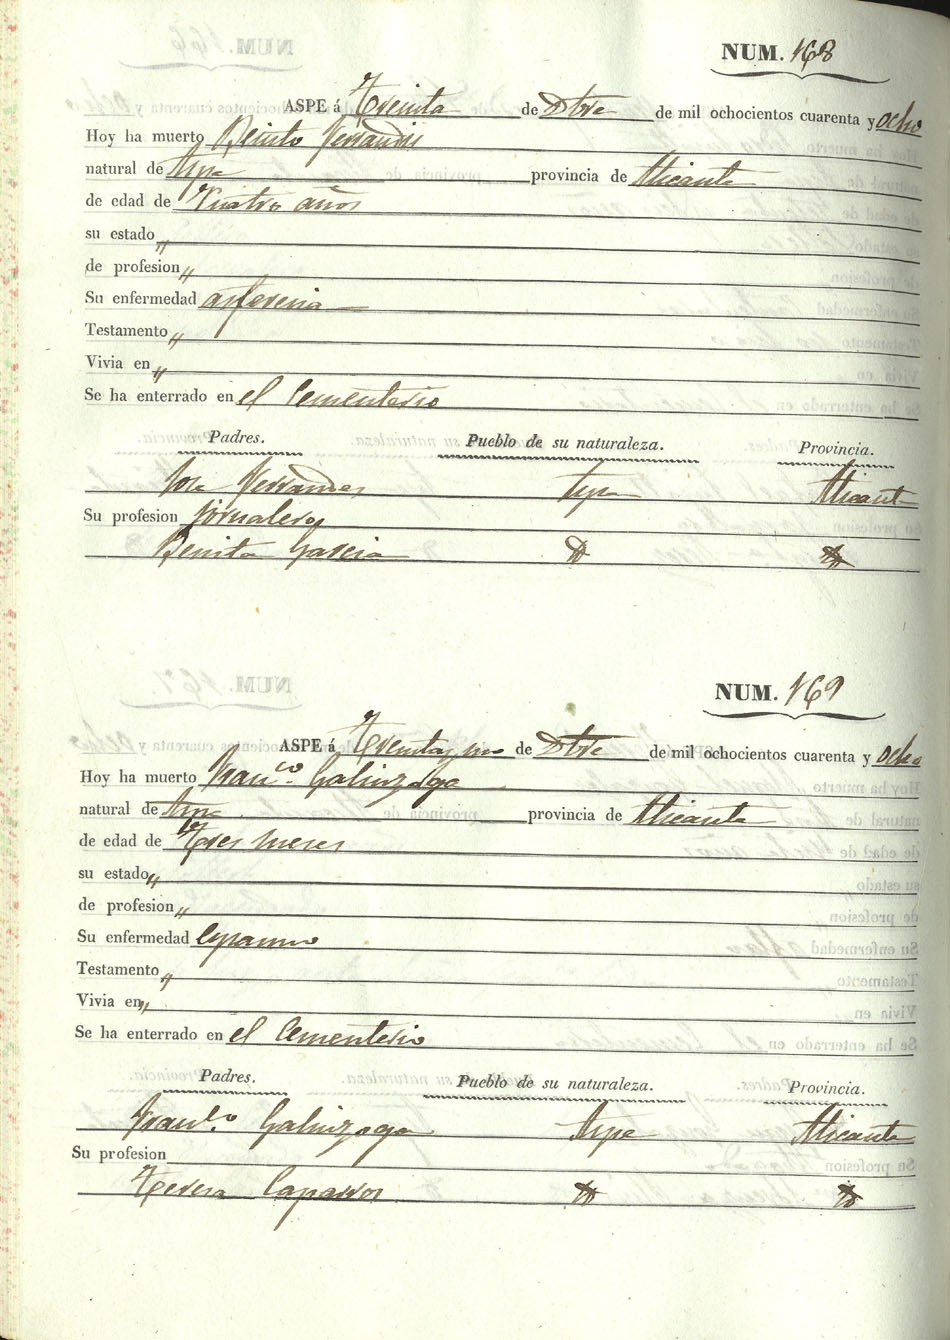 NUM. 168
ASPE á Treinta de Dbre de mil ochocientos cuarenta y ocho
Hoy ha muerto Benito Ferrandis
natural de Aspe provincia de Alicante
de edad de Cuatro años
su estado „
de profesion „
Su enfermedad
Testamento „
Vivia en „
Se ha enterrado en el Cementerio
Padres. Pueblo de su naturaleza. Provincia.
Jose Ferrandes Aspe Alicante
Su profesion jornalero
Benita Garcia
NUM. 169
ASPE á Treinta y uno de Dbre de mil ochocientos cuarenta y ocho
Hoy ha muerto Franco. Galinzoga
natural de Aspe provincia de Alicante
de edad de Tres meses
su estado „
de profesion „
Su enfermedad
Testamento „
Vivia en „
Se ha enterrado en el Cementerio
Padres. Pueblo de su naturaleza. Provincia.
Franco. Galinzoga Aspe Alicante
Su profesion
Teresa Caparros